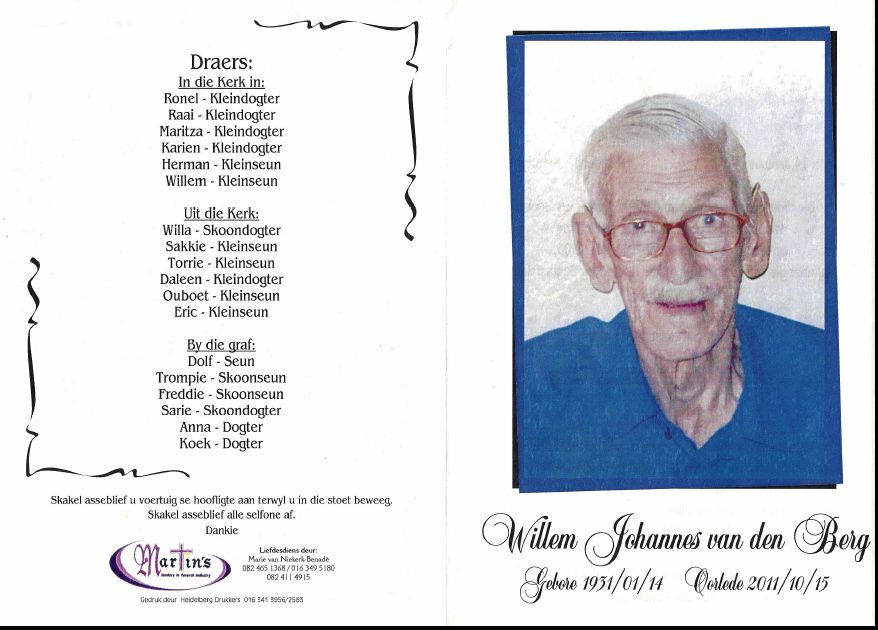 Draers:
In die Kerk in:
Ronel - Kleindogter
Raai - Kleindogter
Maritza - Kleindogter
Karien - Kleindogter
Herman - Kleinseun
Willem - Kleinseun
Uit die Kerk:
Willa - Skoondogter
Sakkie - Kleinseun
Torrie - Kleinseun
Daleen - Kleindogter
Ouboet - Kleinseun
Eric - Kleinseun
By die graf:
Dolf - Seun
Trompie - Skoonseun
Freddie - Skoonseun
Sarie - Skoondogter
Anna - Dogter
Koek - Dogter
Skakel asseblief u voertuig se hoofligte aan terwyl u in die stoet beweeg.
Skakel asseblief alle selfone af.
Dankie
Martin's
leaders in funeral industry
Liefdesdiens deur:
Marie van Niekerk-Benadè
082 465 1368 / 016 349 5180
082 411 4915
Gedruk deur Heidelberg Drukkers 016 341 3956/2583
Willem Johannes van den Berg
Gebore 1931/01/14 Oorlede 2011/10/15